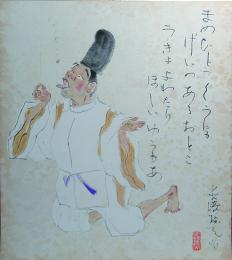 まめひとつくうにも
げいのあるおとこ
うきよよわたり
ほしいゆうもあ